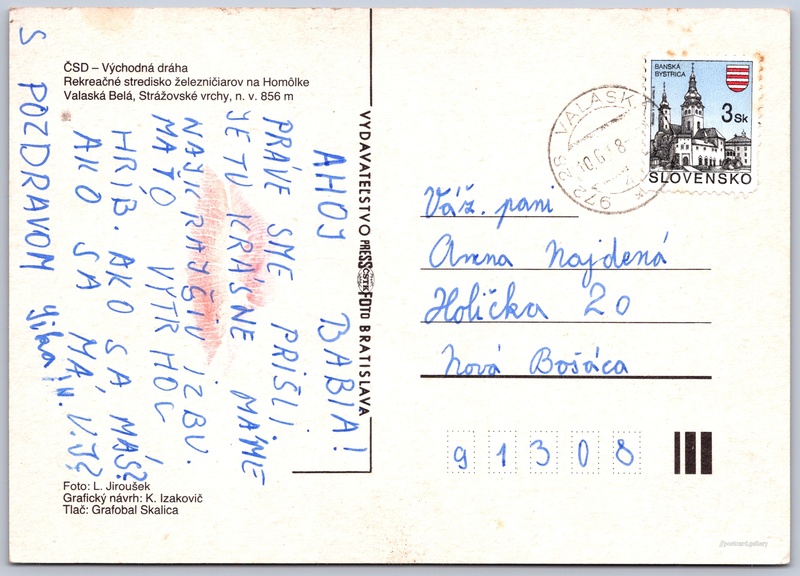 ČSD – Východná dráha
Rekreačné stredisko železničiarov na Homôlke
Valaská Belá, Strážovské vrchy, n. v. 856 m
AHOJ BABIA!
PRÁVE SME PRIŠLI.
JE TU KRÁSNE MÁME
NAJKRAJŠIU IZBU.
MAŤO VYTRHOL
HRÍB. AKO SA MÁŠ?
AKO SA MÁ, U.J?
S POZDRAVOM
Foto: L. Jiroušek
Grafický návrh: K. Izakovič
Tlač: Grafobal Skalica
VYDAVATEĽSTVO PRESSFOTO BRATISLAVA
ČSTK
BANSKÁ
BYSTRICA
3 Sk
SLOVENSKO
VALASK
972 28
Váž. pani
Anna Najdená
Holička 20
Nová Bošáca
91308
postcard.gallery